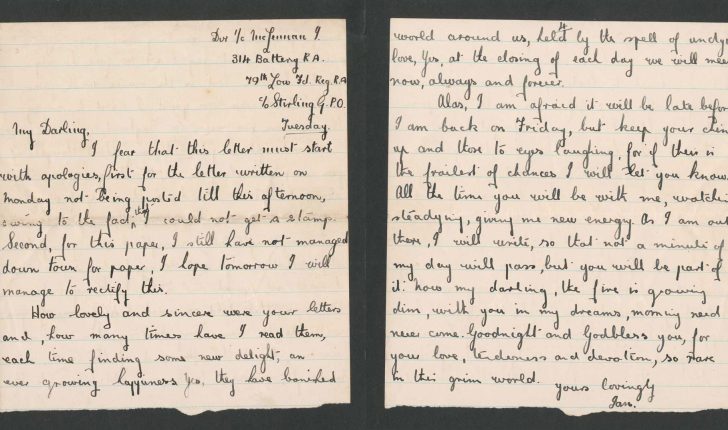 Dvr i/c McLennan J.
314 Battery R.A.
79th Low Fd. Reg. R.A
c/o Stirling G.P.O.
Tuesday.
My Darling,
I fear that this letter must start
with apologies, first for the letter written on
Monday not being posted till this afternoon,
owing to the fact, that I could not get a stamp.
Second, for this paper, I still have not managed
down town for paper, I hope tomorrow I will
manage to rectify this.
How lovely and sincere were your letters
and, how many times have I read them,
each time finding some new delight, an
ever growing happiness yes, they have banished
4
world around us, held by the spell of undy
love, Yes, at the closing of each day we will mee
now, always and forever.
Alas, I am afraid it will be late before
I am back on Friday, but keep your chin
up and those to eyes laughing, for if there is
the frailest of chances I will let you know.
All the time you will be with me, watchin
steadying, giving me new energy. As I am out
there, I will write, so that not a minute of
my day will pass, but you will be part of
it: now my darling, the fire is growing
dim, with you in my dreams, morning need
never come. Goodnight and Godbless you, for
your love, tenderness and devotion, so rare
in this grim world.
yours lovingly
Ian.